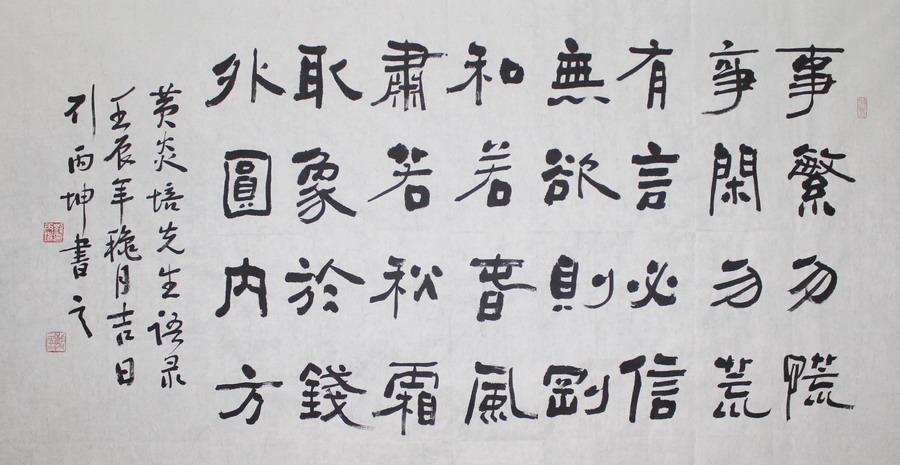 事繁勿慌
事閑勿荒
有言必信
無欲則剛
和若春風
肅若秋霜
取象於錢
外圓内方
黄炎培先生语录
壬辰年穐月吉日
丙坤書之